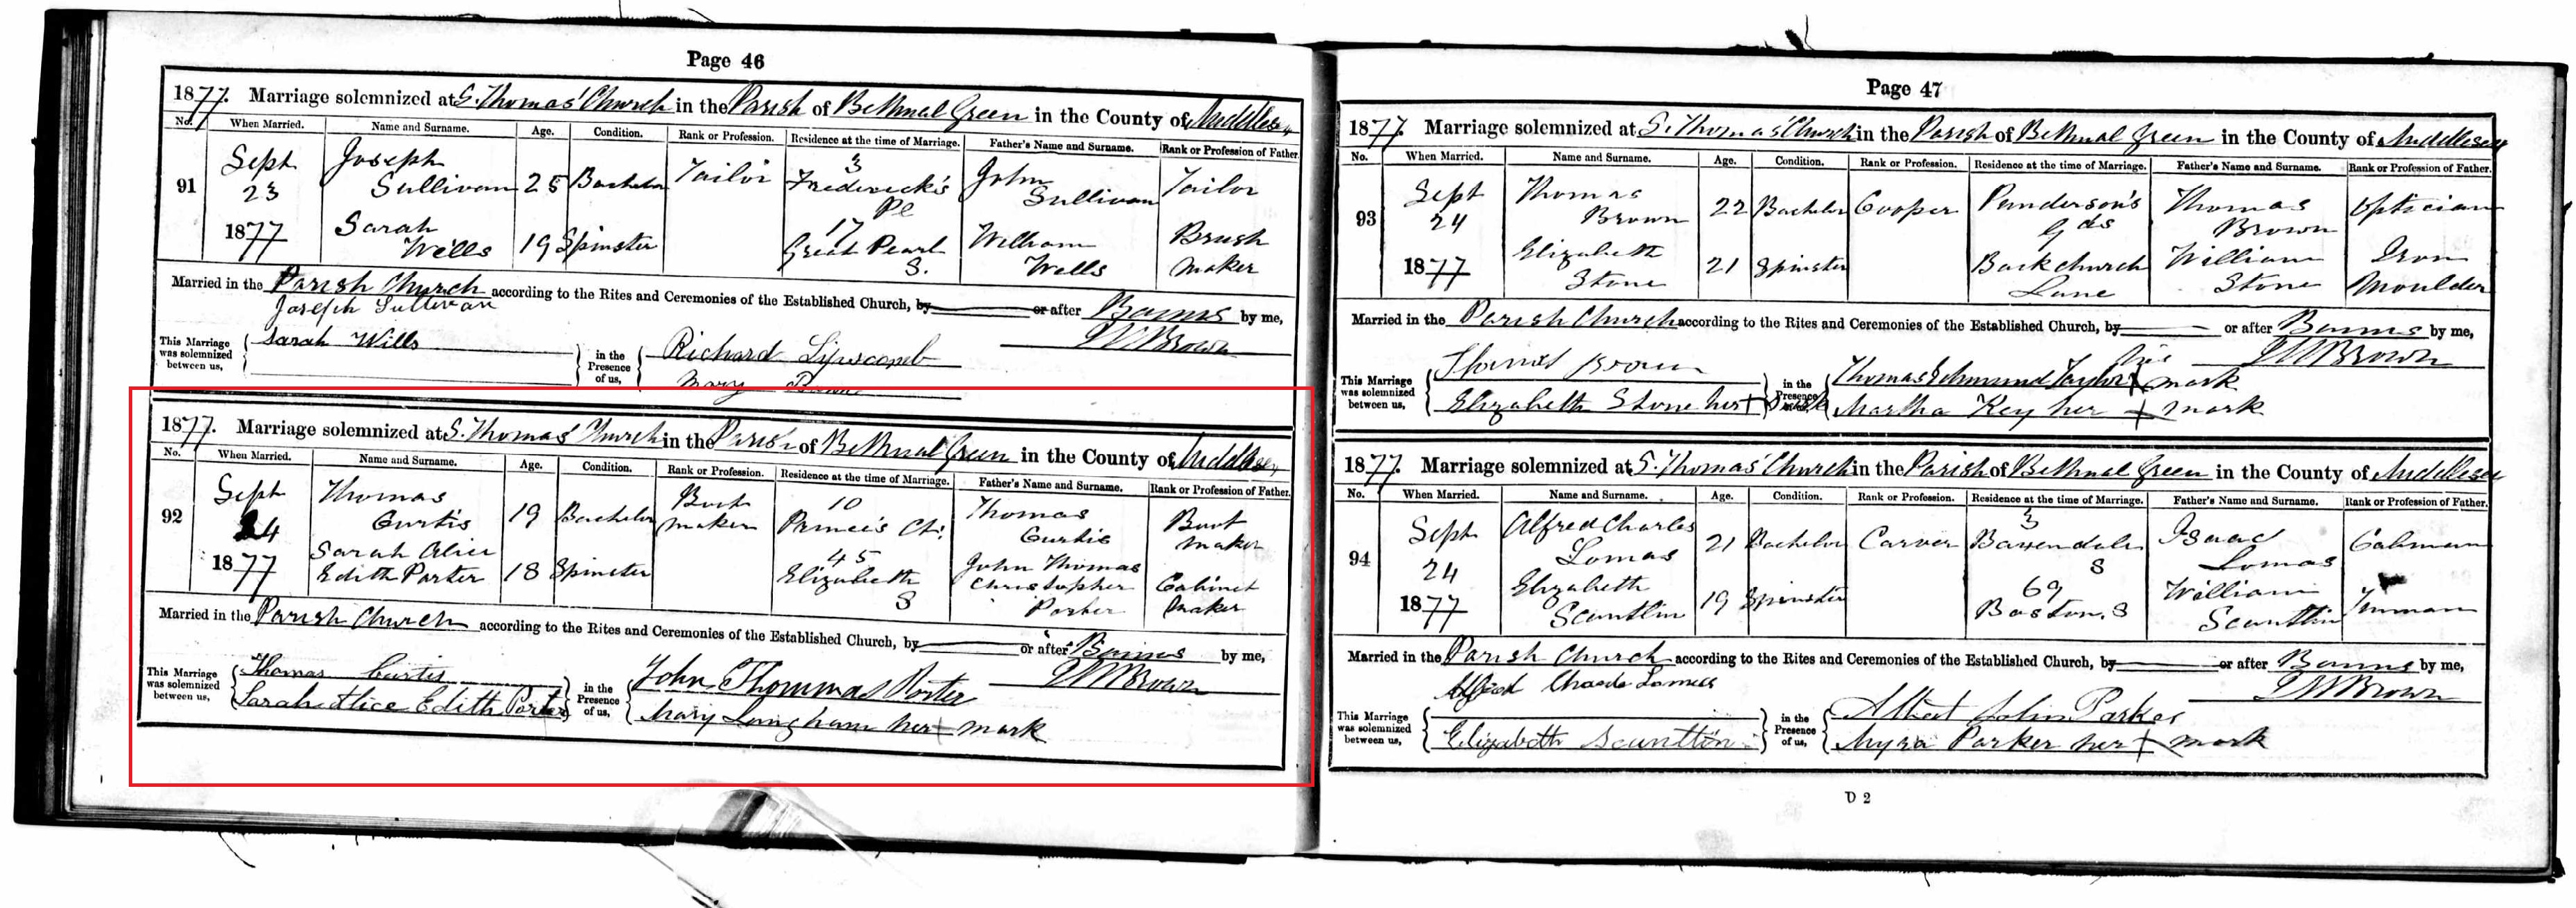 Page 46
1877. Marriage solemnized at S. Thomas' Church in the Parish of Bethnal Green in the County of Middlesex
No. When Married. Name and Surname. Age. Condition. Rank or Profession. Residence at the time of Marriage. Father's Name and Surname. Rank or Profession of Father.
91 Sept 23 1877 Joseph Sullivan 25 Bachelor Tailor 3 Frederick's Pl John Sullivan Tailor
Sarah Wells 19 Spinster 17 Great Pearl S. William Wells Brush Maker
Married in the Parish Church according to the Rites and Ceremonies of the Established Church, by or after Banns by me,
Joseph Sullivan
This Marriage was solemnized between us, Sarah Wills in the Presence of us, Richard Lipscomb
Mary
Brown
1877. Marriage solemnized at S. Thomas' Church in the Parish of Bethnal Green in the County of Middlesex
No. When Married. Name and Surname. Age. Condition. Rank or Profession. Residence at the time of Marriage. Father's Name and Surname. Rank or Profession of Father.
92 Sept 24 1877 Thomas Curtis 19 Bachelor Boot maker 10 Prince's Ct. Thomas Curtis Boot maker
Sarah Alice Edith Porter 18 Spinster 45 Elizabeth S John Thomas Christopher Porter Cabinet Maker
Married in the Parish Church according to the Rites and Ceremonies of the Established Church, by or after Banns by me,
This Marriage was solemnized between us, Thomas Curtis in the Presence of us, John Thommas Porter
Sarah Alice Edith Porter Mary Langham her + mark
Brown
Page 47
1877. Marriage solemnized at S. Thomas' Church in the Parish of Bethnal Green in the County of Middlesex
No. When Married. Name and Surname. Age. Condition. Rank or Profession. Residence at the time of Marriage. Father's Name and Surname. Rank or Profession of Father.
93 Sept 24 1877 Thomas Brown 22 Bachelor Cooper Punderson's Gds Thomas Brown Optician
Elizabeth Stone 21 Spinster Backchurch Lane William Stone Iron Moulder
Married in the Parish Church according to the Rites and Ceremonies of the Established Church, by or after Banns by me,
This Marriage was solemnized between us, Thomas Brown in the Presence of us, Thomas Edmund Taylor + mark
Elizabeth Stone her + mark Martha Key her + mark
Brown
1877. Marriage solemnized at S. Thomas' Church in the Parish of Bethnal Green in the County of Middlesex
No. When Married. Name and Surname. Age. Condition. Rank or Profession. Residence at the time of Marriage. Father's Name and Surname. Rank or Profession of Father.
94 Sept 24 1877 Alfred Charles Lomas 21 Bachelor Carver 3 Baxendale S Isaac Lomas Cabman
Elizabeth Scuntlin 19 Spinster 69 Boston S William Scuntlin
Married in the Parish Church according to the Rites and Ceremonies of the Established Church, by or after Banns by me,
Alfred Lomas
This Marriage was solemnized between us, Elizabeth in the Presence of us, Albert John Parker
Myra Parker her + mark
Brown
D 2